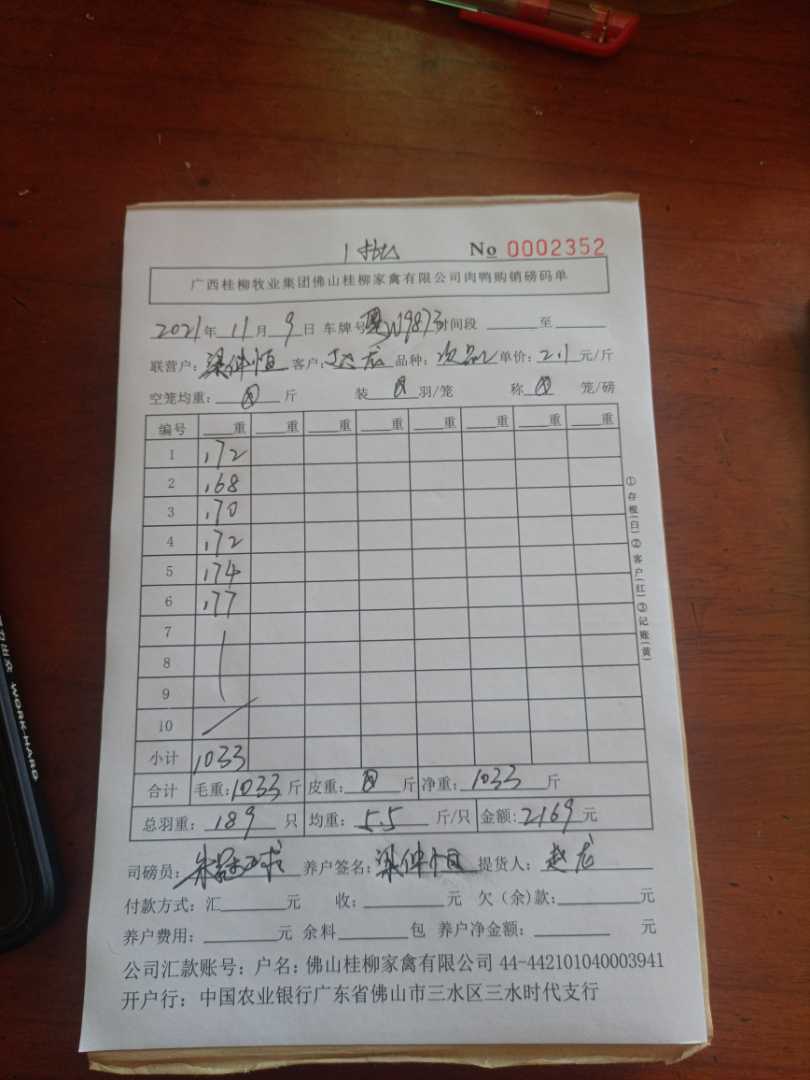 No 0002352
广西桂柳牧业集团佛山桂柳家禽有限公司肉鸭购销磅码单
2021年 11月 9日 车牌号 W9873 时间段 至
联营户: 梁伸恒 客户: 赵龙 品种: 次品 单价: 2.1 元/斤
空笼均重: 斤 装 羽/笼 称 笼/磅
编号 重 重 重 重 重 重 重 重
1 172
2 168
3 170
4 172
5 174
6 177
7
8
9
10
小计 1033
合计 毛重: 1033 斤 皮重: 斤 净重: 1033 斤
总羽重: 189 只 均重: 5.5 斤/只 金额: 2169 元
司磅员: 养户签名: 梁伸恒 提货人: 赵龙
付款方式: 汇 元 收: 元 欠(余)款: 元
养户费用: 元 余料 包 养户净金额: 元
公司汇款账号: 户名: 佛山桂柳家禽有限公司 44-442101040003941
开户行: 中国农业银行广东省佛山市三水区三水时代支行
①存根(白)②客户(红)③记账(黄)
WORK HARD